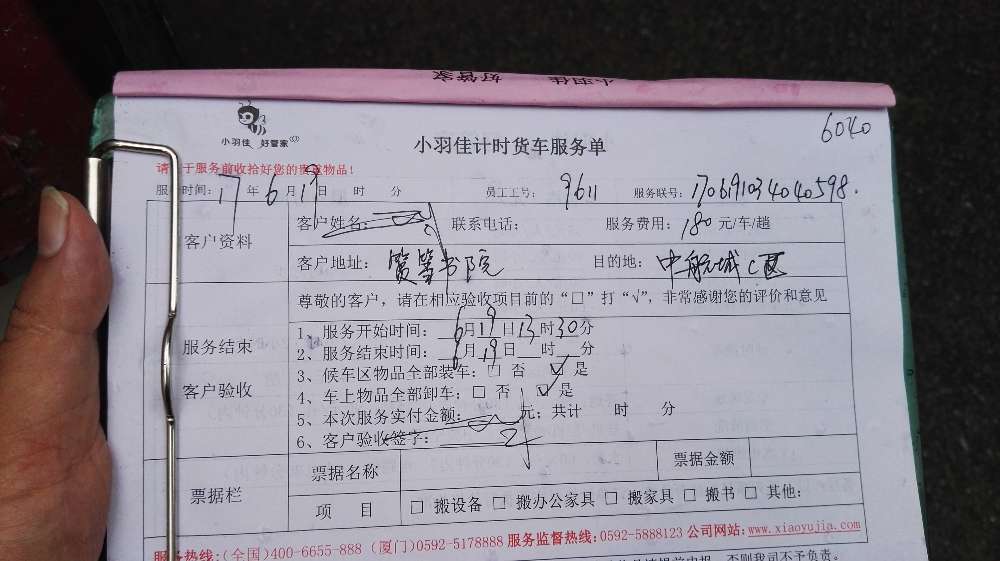 小羽佳 好管家
小羽佳 好管家
6040
小羽佳计时货车服务单
请 于服务前收拾好您的贵重物品!
服务时间: 17 年 6 月 19 日 时 分 员工工号: 9611 服务联号: 1706191034040598.
客户资料
客户姓名: 联系电话: 服务费用: 180 元/车/趟
客户地址: 筼筜书院 目的地: 中航城C区
服务结束
客户验收
尊敬的客户,请在相应验收项目前的“□”打“√”,非常感谢您的评价和意见
1、服务开始时间: 6月19日13时30分
2、服务结束时间: 6月19日 时 分
3、候车区物品全部装车: □ 否 ☑ 是
4、车上物品全部卸车: □ 否 ☑ 是
5、本次服务实付金额: 元; 共计 时 分
6、客户验收签字:
票据栏
票据名称 票据金额
项 目 □ 搬设备 □ 搬办公家具 □ 搬家具 □ 搬书 □ 其他:
服务热线:(全国)400-6655-888 (厦门)0592-5178888 服务监督热线:0592-5888123 公司网站:www.xiaoyujia.com
否则我司不予负责。